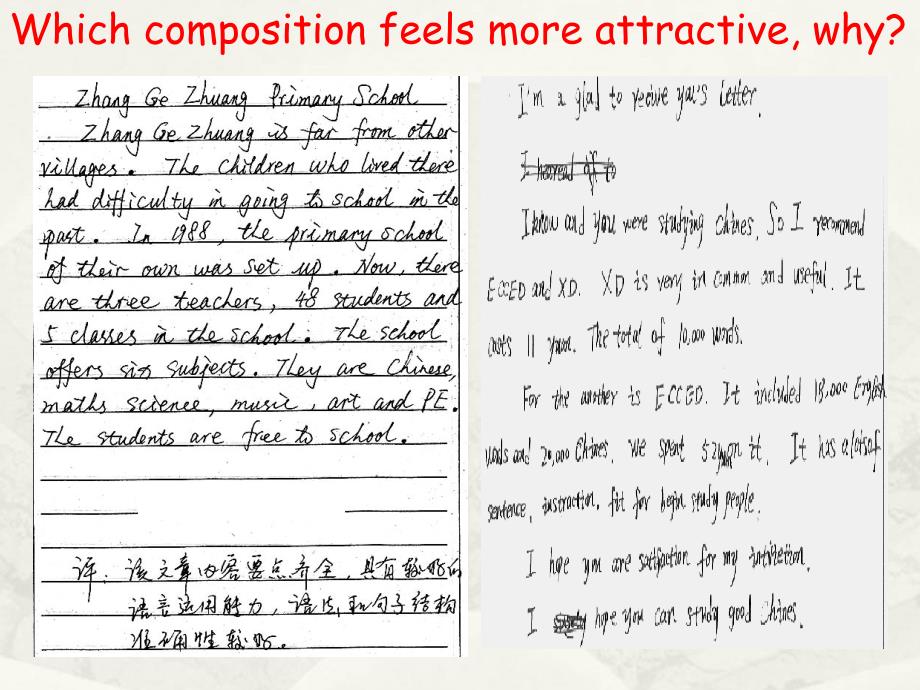 Which composition feels more attractive, why?
Zhang Ge Zhuang Primary School
Zhang Ge Zhuang is far from other
villages. The children who lived there
had difficulty in going to school in the
past. In 1988, the primary school
of their own was set up. Now, there
are three teachers, 48 students and
5 classes in the school. The school
offers six subjects. They are Chinese,
maths science, music, art and PE.
The students are free to school.
评：该文章内容要点齐全，具有较好的
语言运用能力，语法，和句子结构
准确性较好。
I'm a glad to recive you's letter.
I heared of to
I know and you were studying Chines. So I recommend
ECCED and XD. XD is very in common and useful. It
costs 11 yuan. The total of 10,000 words.
For the another is ECCED. It included 18,000 English
words and 20,000 Chines. We spent 52 on it. It has a lots of
sentence, instruction. fit for begin study people.
I hope you are satisfaction for my
I hope you can study good Chines.